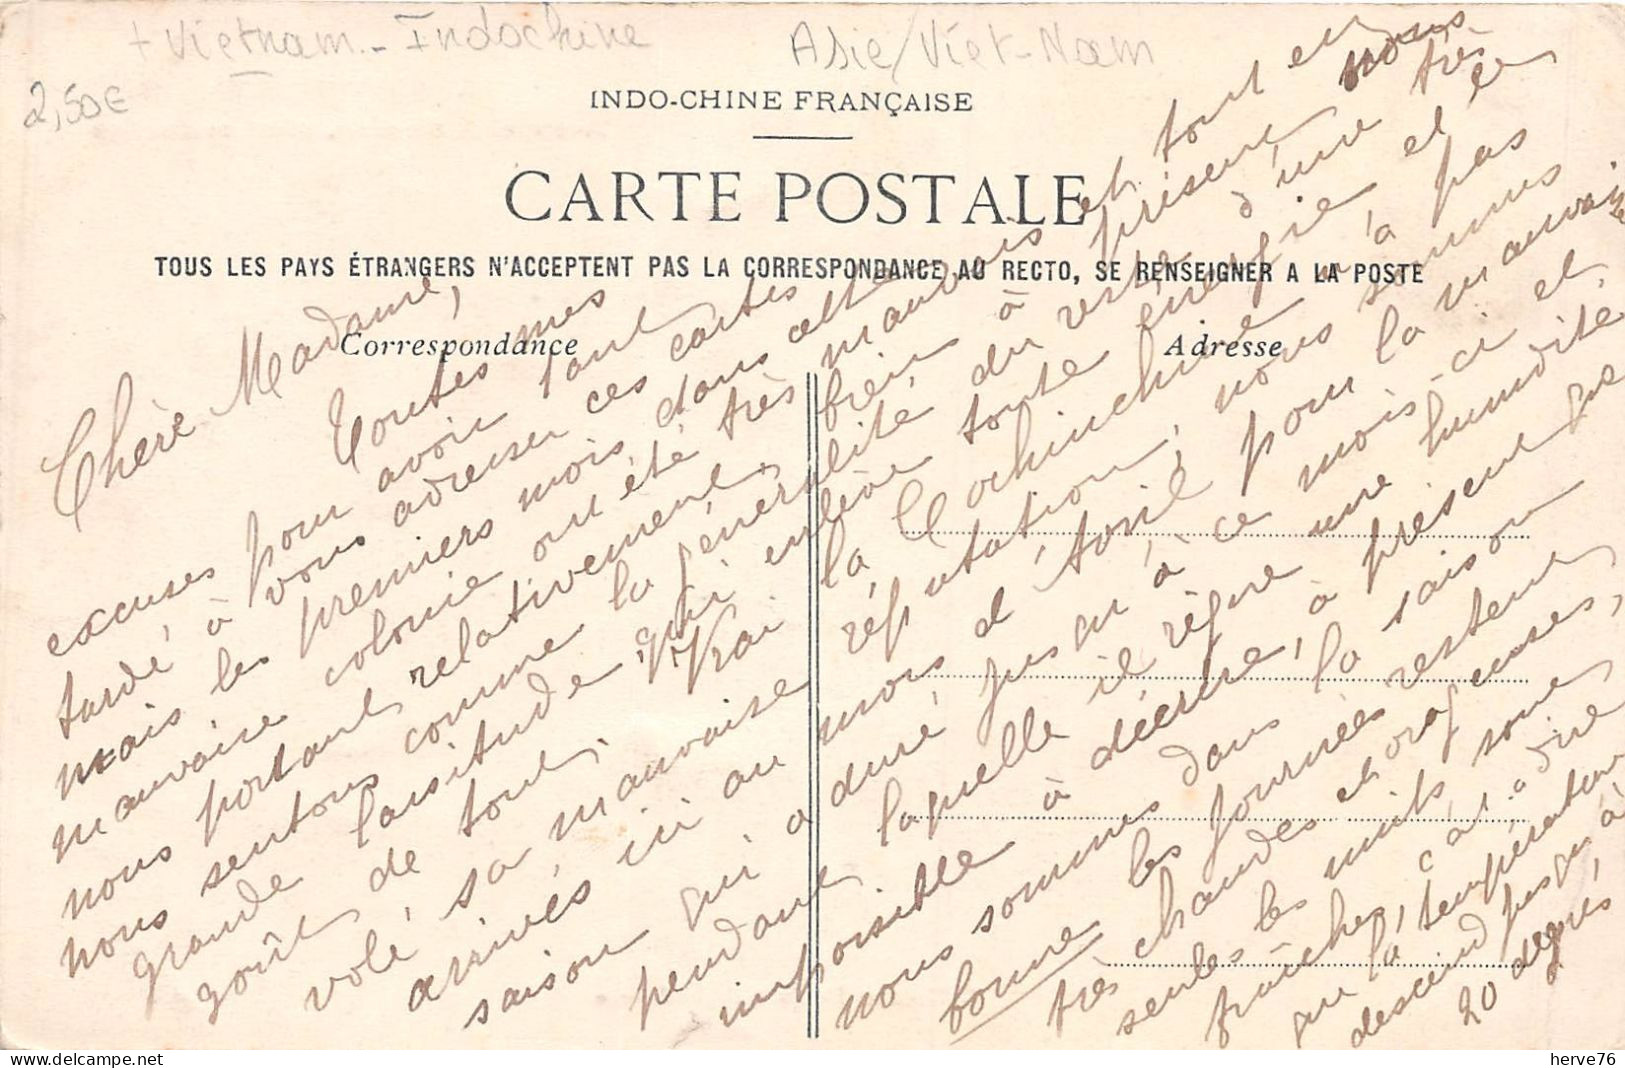 + Vietnam - Indochine
Asie/Viêt-Nam
2,50€
INDO-CHINE FRANÇAISE
CARTE POSTALE
TOUS LES PAYS ÉTRANGERS N'ACCEPTENT PAS LA CORRESPONDANCE AU RECTO, SE RENSEIGNER A LA POSTE
Correspondance
Adresse
Chère Madame,
Toutes mes
excuses pour avoir tant
tardé à vous adresser ces cartes
mais les premiers mois, dans cette
mauvaise colonie ont été très mauvais et tout en
nous portant relativement bien à présent nous
nous sentons comme la généralité du reste d'une très
grande lassitude qui enlève toute énergie et le
goût de tout. Vrai la Cochinchine n'a pas
volé sa mauvaise réputation, nous sommes
arrivés ici au mois d'Avril pour la mauvaise
saison qui a duré jusqu'à ce mois-ci et
pendant laquelle il règne une humidité
impossible à décrire, à présent que
nous sommes dans la saison
bonne les journées restent
très chaudes et orageuses,
seules les nuits sont
fraîches, c'est à dire
que la température
descend jusqu'à
20 degrés
herve76